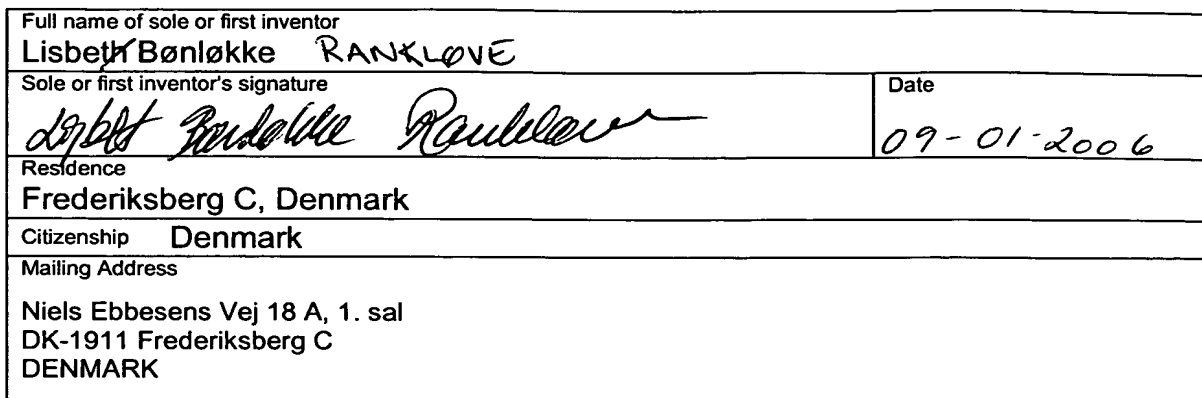 Full name of sole or first inventor
Lisbeth Bønløkke RANKLØVE
Sole or first inventor's signature
Date
Lisbet Bønløkke Rankløve
09-01-2006
Residence
Frederiksberg C, Denmark
Citizenship Denmark
Mailing Address
Niels Ebbesens Vej 18 A, 1. sal
DK-1911 Frederiksberg C
DENMARK